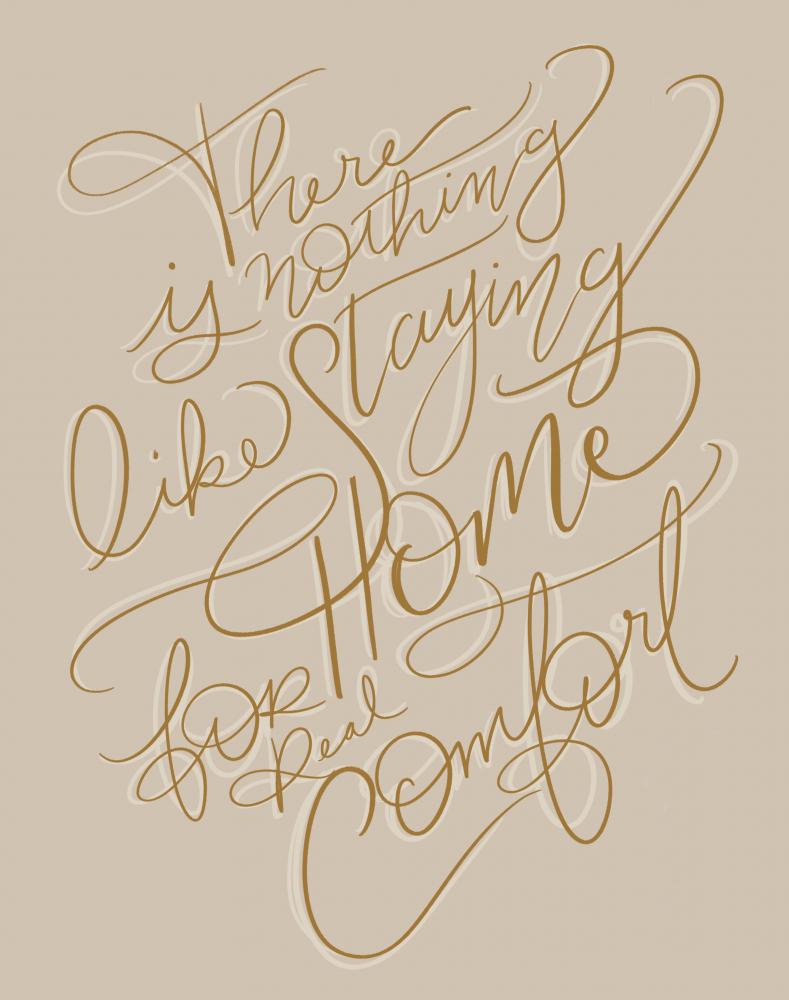 There
nothing
is
staying
like
Home
for
Real
Comfort